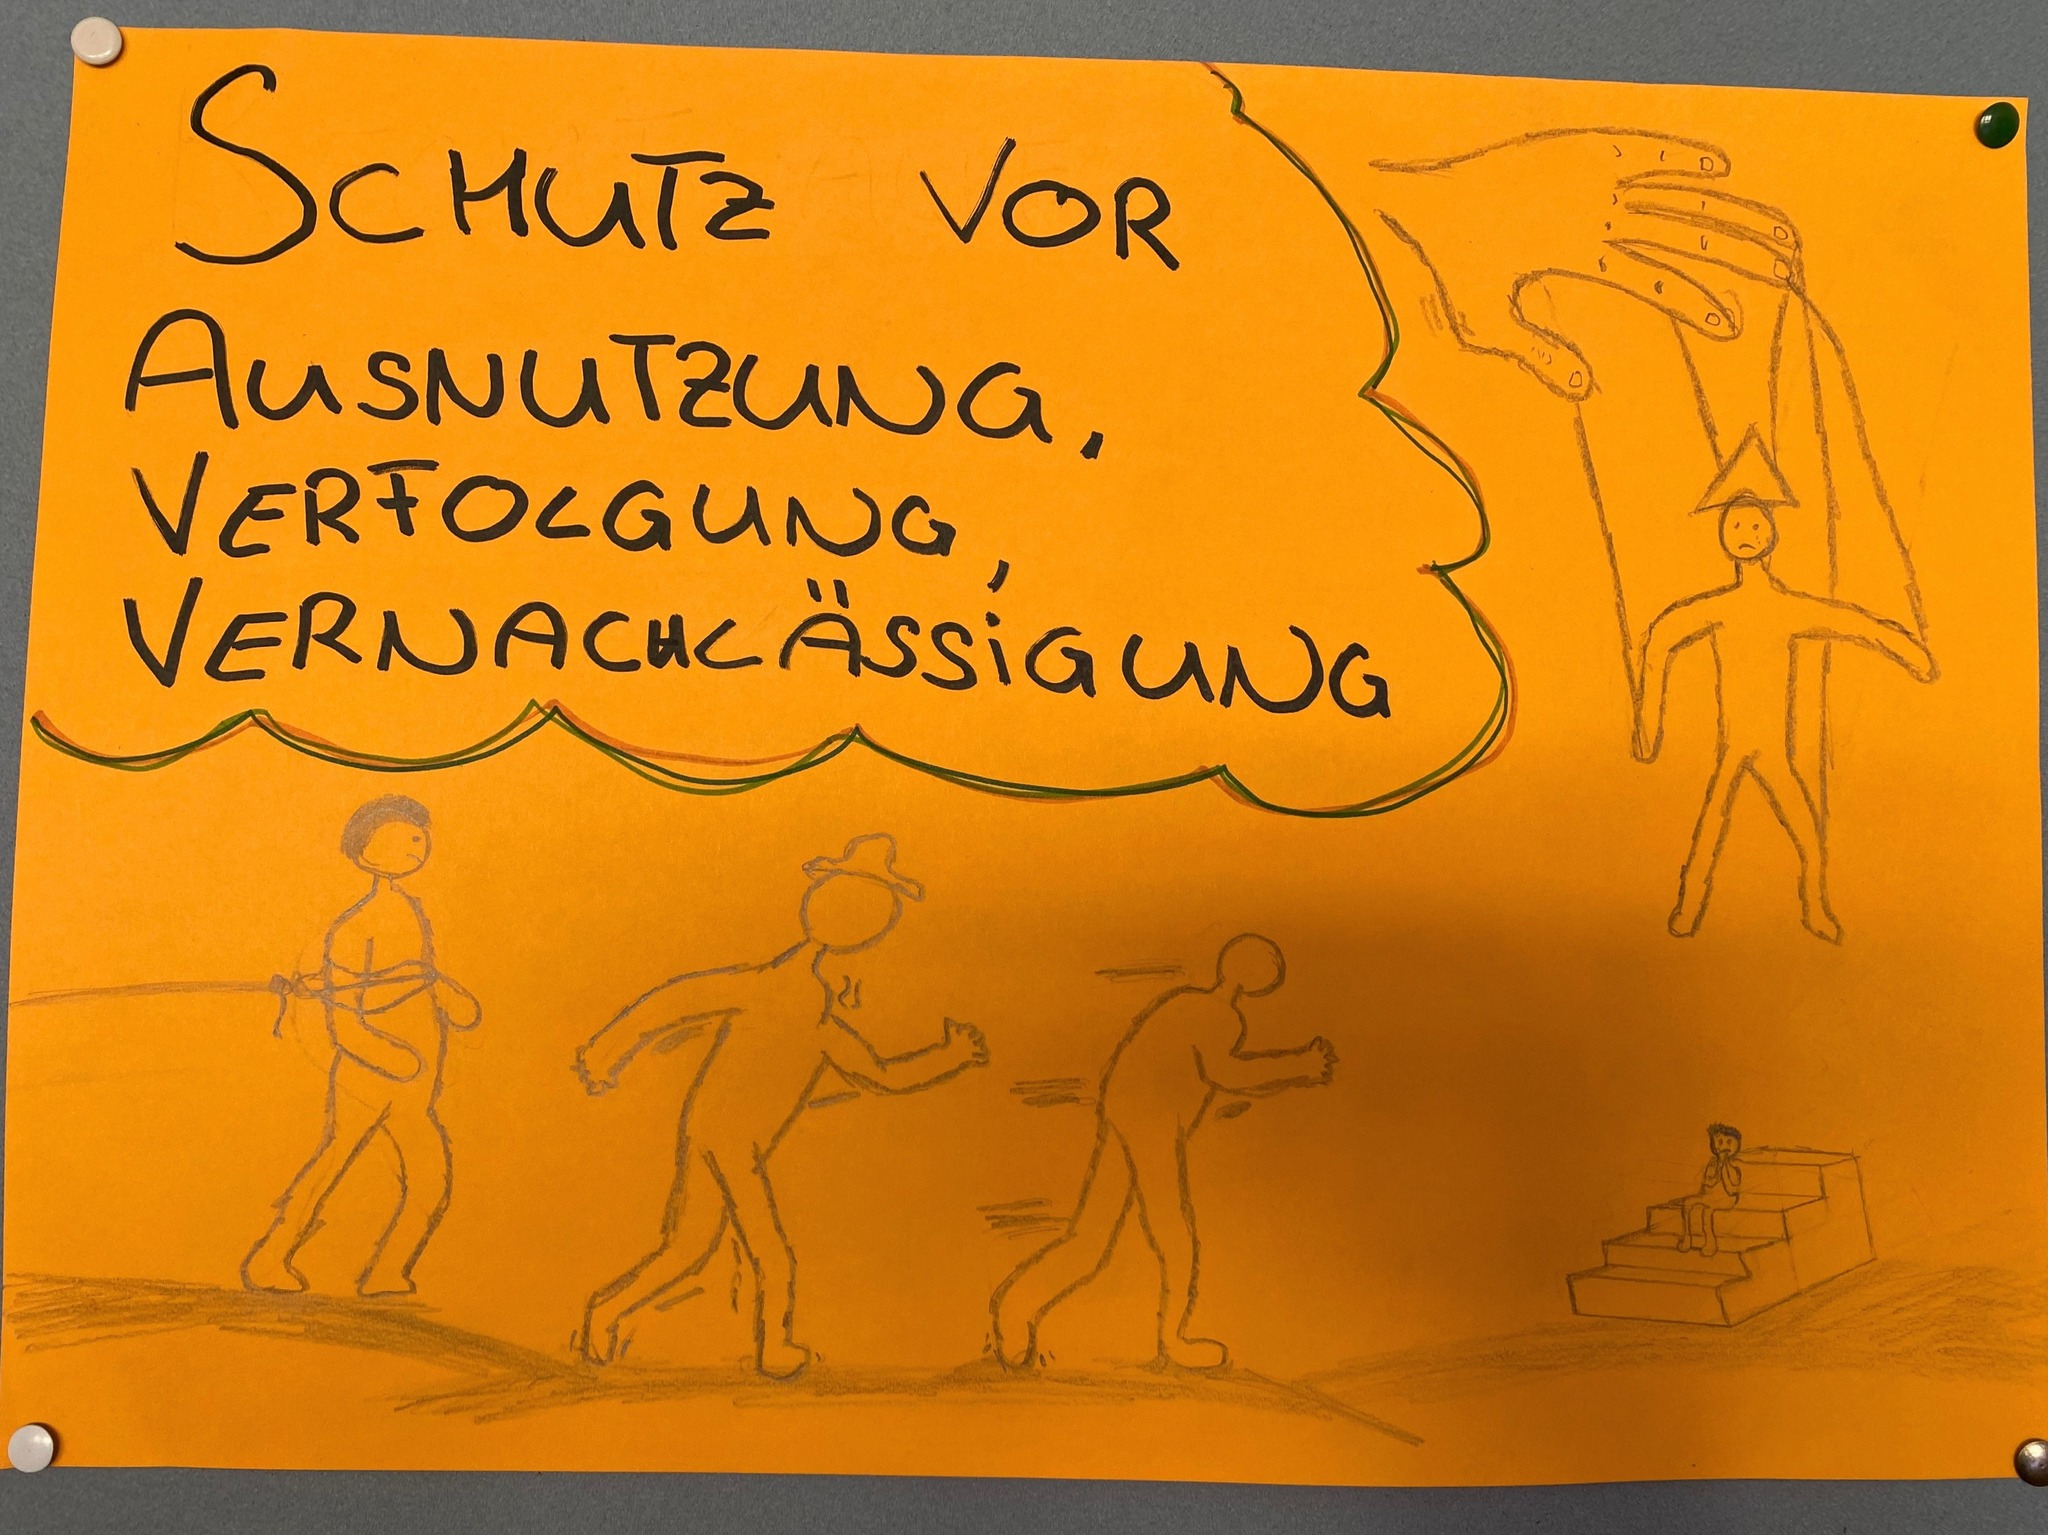 SCHUTZ VOR
AUSNUTZUNG,
VERFOLGUNG,
VERNACHLÄSSIGUNG